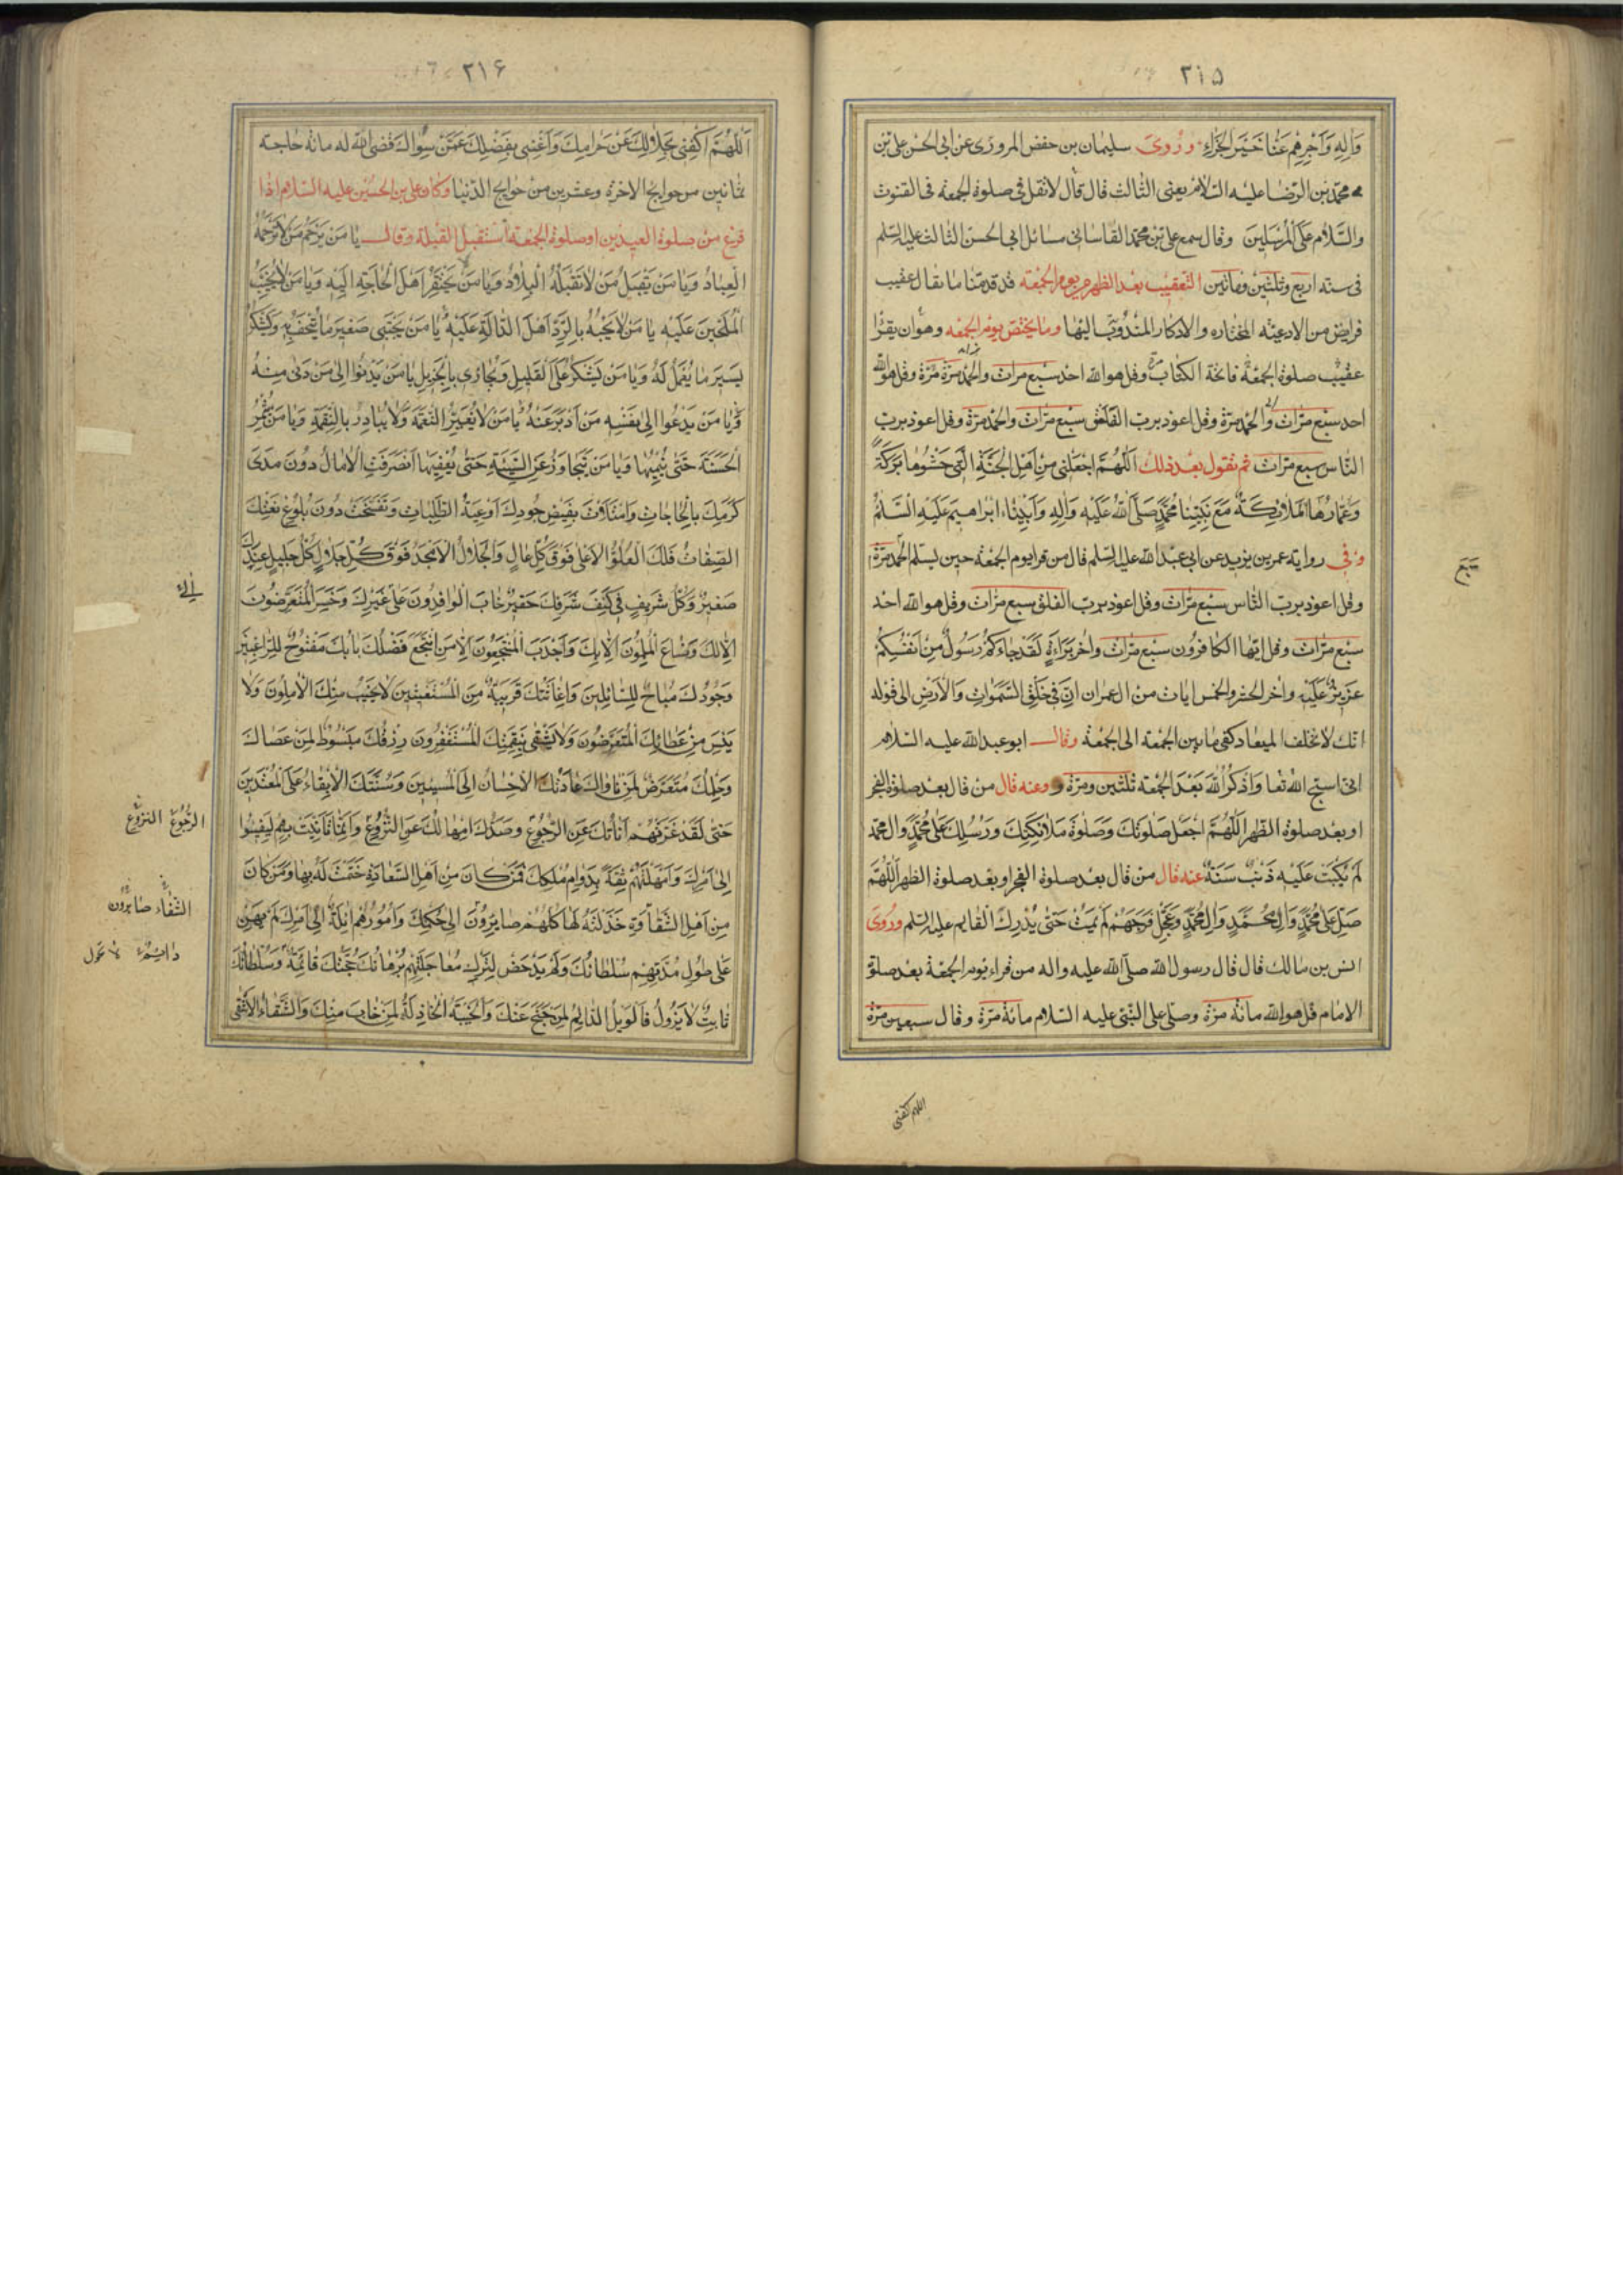 ۳۱۵
وَآلِهِ وَاَجْزِهِمْ عَنَّا خَيْرَ الْجَزَاءِ وروى سليمان بن حفص المروزى عن ابى الحسن على بن
محمد بن الرضا عليه السلام يعنى الثالث قال قال لا تقل فى صلوة الجمعة فى القنوت
والسَّلامُ عَلَى الْمُرْسَلينَ وقال سمع على بن محمد القاسانى مسائل ابى الحسن الثالث عليه السلم
فى سنه اربع وثلثين ومائتين التعقيب بعد الظهر من يوم الجمعة قد قدمنا ما يقال عقيب
فرايض من الادعيته المختاره والاذكار المندوب اليها ومما يختص يوم الجمعه وهو ان يقرا
عقيب صلوة الجمعة فاتحة الكتاب مرة وقل هو الله احد سبع مرات والحمد مرة مرة وقل هو الله
احد سبع مرات والحمد مرة وقل اعوذ برب الفلق سبع مرات والحمد مرة وقل اعوذ برب
الناس سبع مرات ثم تقول بعد ذلك اَللّهُمَّ اجْعَلْنى مِنْ اَهْلِ الْجَنَّةِ الَّتى حَشْوُها بَرَكَةٌ
وَعُمّارُهَا الْمَلائِكَةُ مَعَ نَبِيِّنا مُحَمَّدٍ صَلَّى اللهُ عَلَيْهِ وَآلِهِ وَاَبينا اِبْراهيمَ عَلَيْهِ السَّلمُ
وفى روايته عمر بن يزيد عن ابى عبد الله عليه السلم قال من قرا يوم الجمعة حين يسلم الحمد مرة
وقل اعوذ برب الناس سبع مرات وقل اعوذ برب الفلق سبع مرات وقل هو الله احد
سبع مرات وقل ايها الكافرون سبع مرات واخر براءة لَقَدْ جاءَكُمْ رَسُولٌ مِنْ اَنْفُسِكُمْ
عَزيزٌ عَلَيْهِ واخر الحشر والخمس ايات من ال عمران اِنَّ فى خَلْقِ السَّمواتِ وَالْاَرْضِ الى قوله
انك لا تخلف الميعاد كفى ما بين الجمعة الى الجمعة وقال ابو عبد الله عليه السلام
وعنه قال من قال بعد صلوة الفجر
او بعد صلوة الظهر اَللّهُمَّ اجْعَلْ صَلَوتَكَ وَصَلوةَ مَلائِكَتِكَ وَرُسُلِكَ عَلى مُحَمَّدٍ وَآلِ مُحَمَّد
لَمْ يُكْتَبْ عَلَيْهِ ذَنْبُ سَنَةٍ عنه قال من قال بعد صلوة الفجر او بعد صلوة الظهر اَللّهُمَّ
صَلِّ عَلى مُحَمَّدٍ وَآلِ مُحَمَّدٍ وَعَجِّلْ فَرَجَهُمْ لم يمت حتى يدرك القايم عليه السلم وروى
انس بن مالك قال قال رسول الله صلى الله عليه واله من قراء يوم الجمعة بعد صلوة
الامام قل هو الله مائة مرة وصلى على النبى عليه السلام مائة مرة وقال سبعين مرة
۳۱۶
اَللّهُمَّ اكْفِنى بِحَلالِكَ عَنْ حَرامِكَ وَاَغْنِنى بِفَضْلِكَ عَمَّنْ سِواكَ قضى الله له مائة حاجة
ثمانين من حوايج الاخرة وعشرين من حوايج الدنيا وكان على بن الحسين عليه السلام اذا
فرغ من صلوة العيدين او صلوة الجمعة استقبل القبلة وقال يا مَنْ يَرْحَمُ مَنْ لا يَرْحَمُهُ
الْعِبادُ وَيا مَنْ يَقْبَلُ مَنْ لا تَقْبَلُهُ الْبِلادُ وَيا مَنْ لا يَحْتَقِرُ اَهْلَ الْحاجَةِ اِلَيْهِ وَيا مَنْ لا يُخَيِّبُ
الْمُلِحّينَ عَلَيْهِ يا مَنْ لا يَجْبَهُ بِالرَّدِّ اَهْلَ الدّالَّةِ عَلَيْهِ يا مَنْ يَجْتَبى صَغيرَ ما يُتْحَفُ بِهِ وَيَشْكُرُ
يَسيرَ ما يُعْمَلُ لَهُ وَيا مَنْ يَشْكُرُ عَلَى الْقَليلِ وَيُجازى بِالْجَزيلِ يا مَنْ يَدْنُوا اِلى مَنْ دَنى مِنْهُ
وَيا مَنْ يَدْعُوا اِلى نَفْسِهِ مَنْ اَدْبَرَ عَنْهُ يا مَنْ لا يُغَيِّرُ النِّعْمَةَ وَلا يُبادِرُ بِالنَّقِمَةِ وَيا مَنْ يُثْمِرُ
الْحَسَنَةَ حَتّى يُنْمِيَها وَيا مَنْ يَتَجاوَزُ عَنِ السَّيِّئَةِ حَتّى يُعْفِيَها اِنْصَرَفَتِ الْامالُ دُونَ مَدى
كَرَمِكَ بِالْحاجاتِ وَامْتَلَأَتْ بِفَيْضِ جُودِكَ اَوْعِيَةُ الطَّلِباتِ وَتَفَسَّخَتْ دُونَ بُلُوغِ نَعْتِكَ
الصِّفاتُ فَلَكَ الْعُلُوُّ الْاَعْلى فَوْقَ كُلِّ عالٍ وَالْجَلالُ الْاَمْجَدُ فَوْقَ كُلِّ جَلالٍ كُلُّ جَليلٍ عِنْدَكَ
صَغيرٌ وَكُلُّ شَريفٍ فى كَنَفِ شَرَفِكَ حَقيرٌ خابَ الْوافِدُونَ عَلى غَيْرِكَ وَخَسِرَ الْمُتَعَرِّضُونَ
اِلاّ لَكَ وَضاعَ الْمُلِمُّونَ اِلاّ بِكَ وَاَجْدَبَ الْمُنْتَجِعُونَ اِلاّ مَنِ انْتَجَعَ فَضْلَكَ بابُكَ مَفْتُوحٌ لِلرّاغِبينَ
وَجُودُكَ مُباحٌ لِلسّائِلينَ وَاِغاثَتُكَ قَريبَةٌ مِنَ الْمُسْتَغيثينَ لا يَخيبُ مِنْكَ الْامِلُونَ وَلا
يَيْئَسُ مِنْ عَطائِكَ الْمُتَعَرِّضُونَ وَلا يَشْقى بِنَقِمَتِكَ الْمُسْتَغْفِرُونَ رِزْقُكَ مَبْسُوطٌ لِمَنْ عَصاكَ
وَحِلْمُكَ مُتَعَرِّضٌ لِمَنْ ناواكَ عادَتُكَ الْاِحْسانُ اِلَى الْمُسيئينَ وَسُنَّتُكَ الْاِبْقاءُ عَلَى الْمُعْتَدينَ
حَتّى لَقَدْ غَرَّتْهُمْ اَناتُكَ عَنِ الرُّجُوعِ وَصَدَّكَ اِمْهالُكَ عَنِ النُّزُوعِ وَاِنَّما تَاَنَّيْتَ بِهِمْ لِيَفيئُوا
اِلى اَمْرِكَ وَاَمْهَلْتَهُمْ ثِقَةً بِدَوامِ مُلْكِكَ فَمَنْ كانَ مِنْ اَهْلِ السَّعادَةِ خَتَمْتَ لَهُ بِها وَمَنْ كانَ
مِنْ اَهْلِ الشَّقاوَةِ خَذَلْتَهُ لَها كُلُّهُمْ صايِرُونَ اِلى حُكْمِكَ وَاُمُورُهُمْ ائِلَةٌ اِلى اَمْرِكَ لَمْ يَهِنْ
عَلى طُولِ مُدَّتِهِمْ سُلْطانُكَ وَلَمْ يَدْحَضْ لِتَرْكِ مُعاجَلَتِهِمْ بُرْهانُكَ حُجَّتُكَ قائِمَةٌ وَسُلْطانُكَ
ثابِتٌ لا يَزُولُ فَالْوَيْلُ الدّائِمُ لِمَنْ جَنَحَ عَنْكَ وَالْخَيْبَةُ الْخاذِلَةُ لِمَنْ خابَ مِنْكَ وَالشَّقاءُ الْاَشْقى
الرجوع النزوع
الشقاء صايرون
اللهم اكفنى